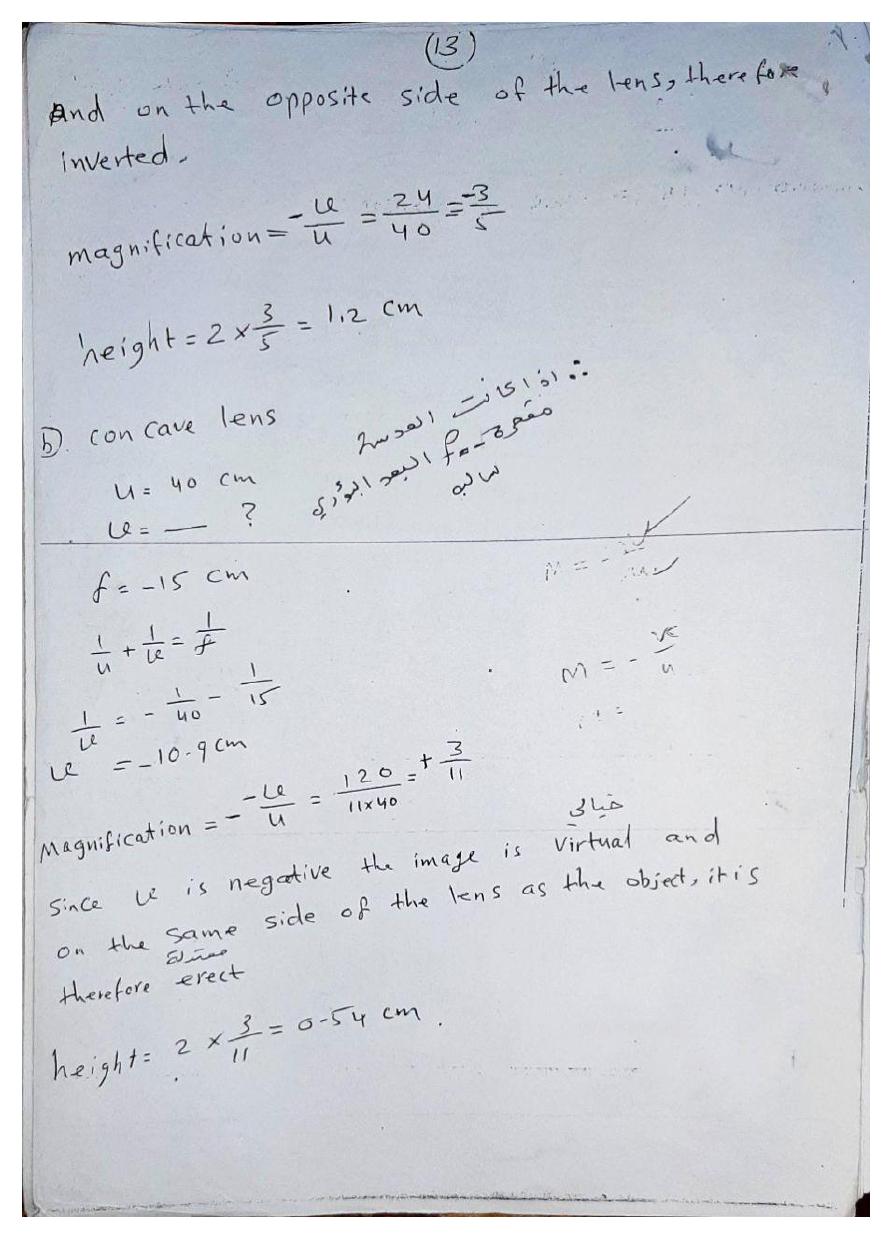 (13)
And on the opposite side of the lens, therefore
inverted.
magnification = -v/u = 24/40 = -3/5
height = 2 × 3/5 = 1.2 cm
b). concave lens
∴ اذا كانت العدسة
مقعرة f = - البعد البؤري
سالبه
u = 40 cm
v = — ?
f = -15 cm
1/u + 1/v = 1/f
1/v = - 1/40 - 1/15
v = -10.9 cm
M = - v/u
Magnification = - -v/u = 120/11×40 = + 3/11
خيالي
Since v is negative the image is virtual and
on the same side of the lens as the object, it is
معتدلة
therefore erect
height = 2 × 3/11 = 0.54 cm.